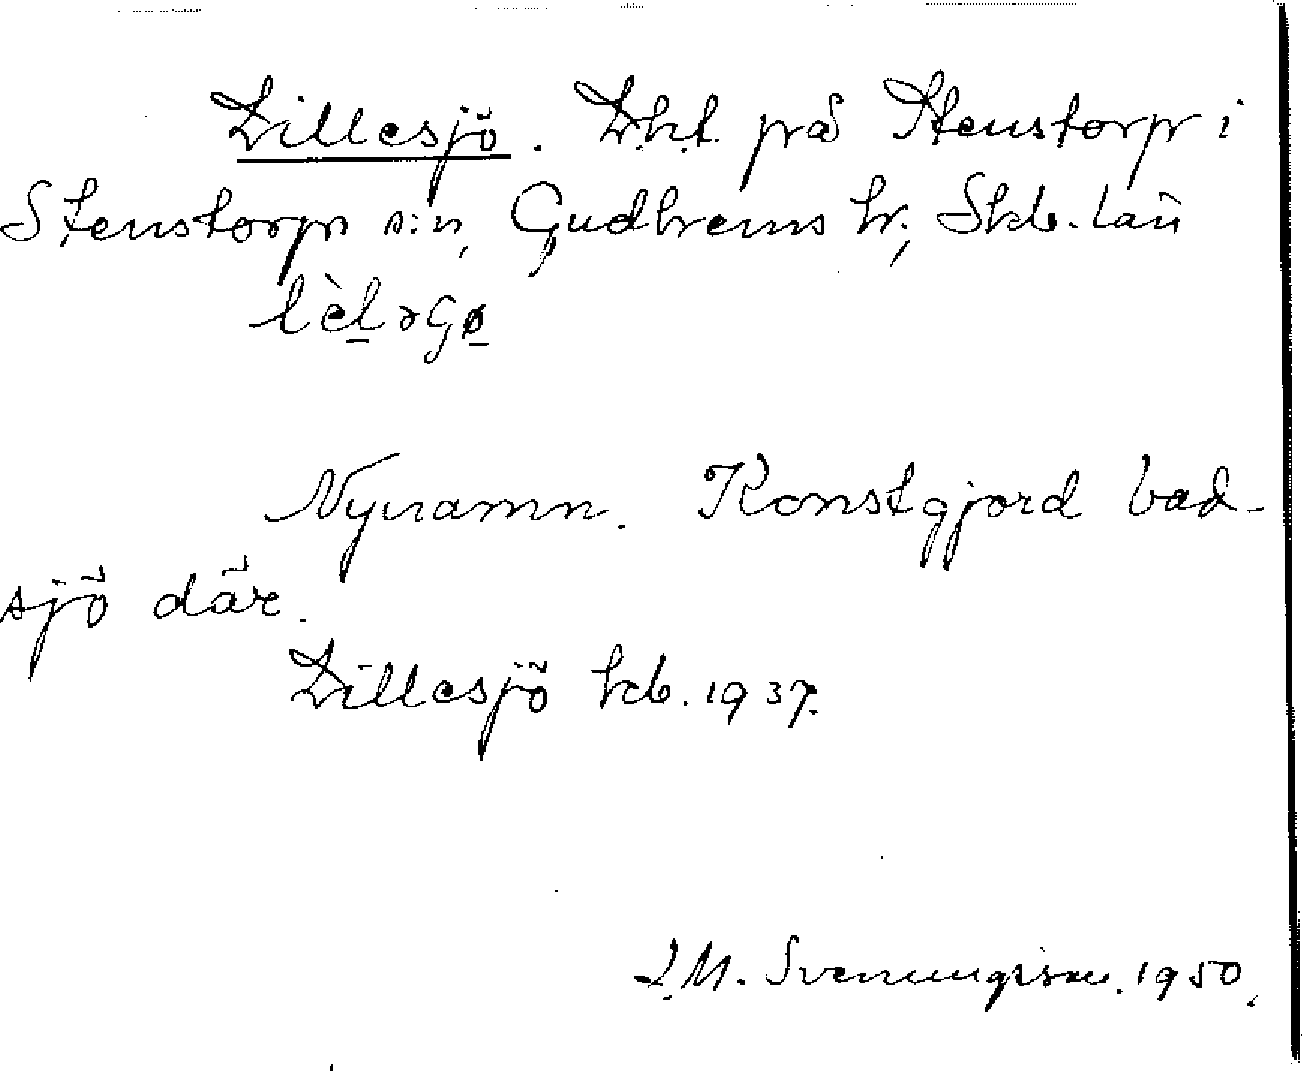 Lillesjö. Lht. på Stenstorp i
Stenstorps s:n, Gudhems hr; Skb. län
lèl̲əGø̲
Nynamn. Konstgjord bad-
sjö där.
Lillesjö 1937.
Svenungsson. 1950.